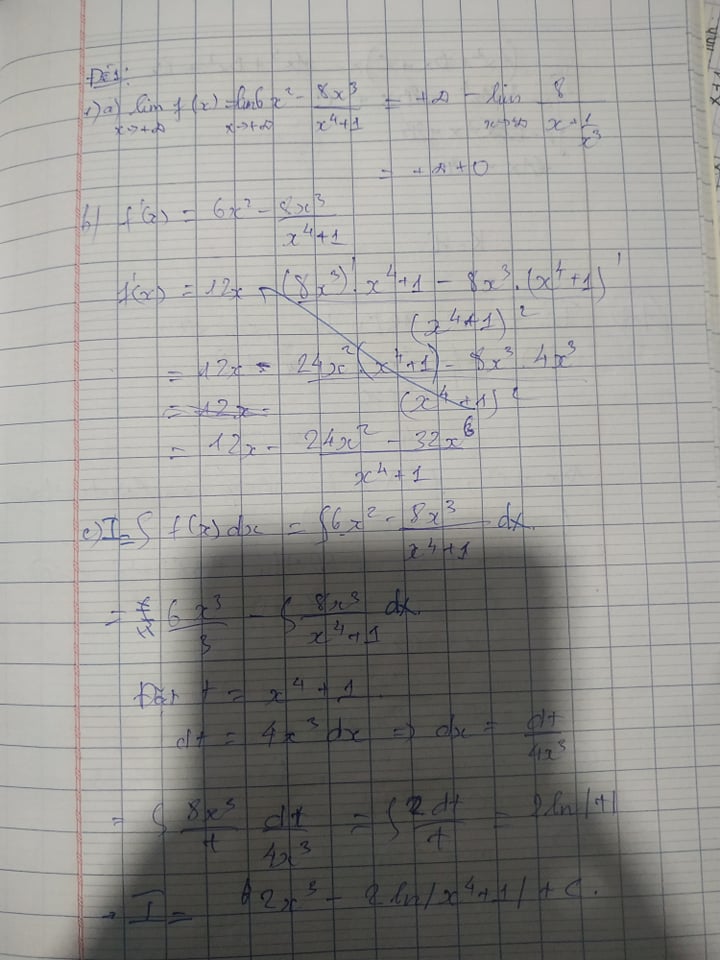 Đề 1:
1) a) lim_{x→+∞} f(x) = lim_{x→+∞} 6x² - 8x³/(x⁴+1) = +∞ - lim_{x→+∞} 8/(x + 1/x³)
= +∞ + 0
b) f'(x) = 6x² - 8x³/(x⁴+1)
f'(x) = 12x - ((8x³)'. x⁴+1 - 8x³.(x⁴+1)')/(x⁴+1)²
= 12x - (24x².(x⁴+1) - 8x³.4x³)/(x⁴+1)²
= 12x -
= 12x - (24x² - 32x⁶)/(x⁴+1)
c) I = ∫ f(x) dx = ∫ 6x² - 8x³/(x⁴+1) dx.
= 6x³/3 - ∫ 8x³/(x⁴+1) dx.
Đặt t = x⁴+1
dt = 4x³ dx ⇒ dx = dt/4x³
= ∫ 8x³/t dt/4x³ = ∫ 2dt/t = 2ln|t|
→ I = 2x³ - 2ln|x⁴+1| + C.